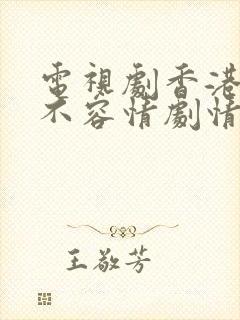 電視劇香港
不容情劇情
王敬芳